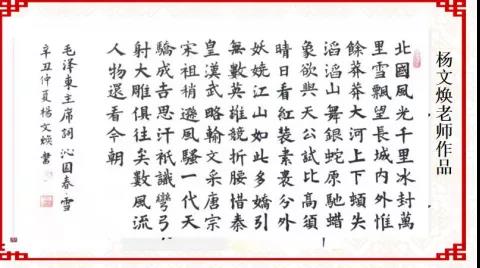 杨文焕老师作品
北國風光千里冰封萬
里雪飄望長城内外惟
餘莽莽大河上下頓失
滔滔山舞銀蛇原馳蠟
象欲與天公試比高須
晴日看紅裝素裹分外
妖嬈江山如此多嬌引
無數英雄競折腰惜秦
皇漢武略輸文采唐宗
宋祖稍遜風騷一代天
驕成吉思汗祇識彎弓
射大雕俱往矣數風流
人物還看今朝
毛澤東主席詞 沁園春·雪
辛丑仲夏楊文煥書